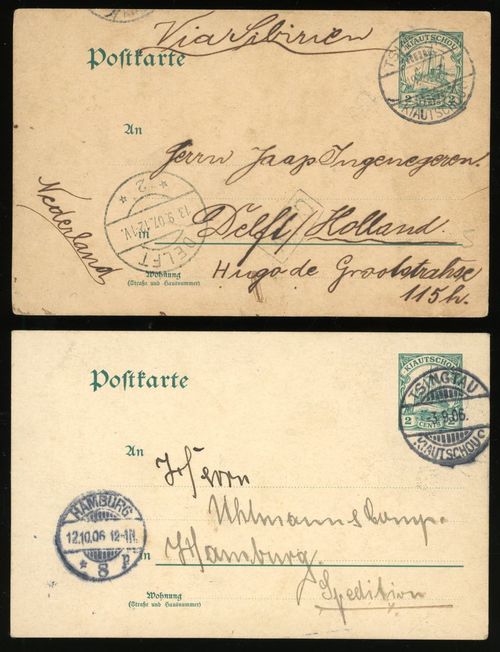 Via Sibirien
Postkarte
KIAUTSCHOU
2 2
TS
KIAUTSCHOU
An
Herrn Jaap Ingenegeren.
Nederland
DELFT
13.9.07. 12-1V.
* 2 *
in Delft / Holland
Hugo de Grootstrahse
115 h.
Wohnung
(Straße und Hausnummer)
Postkarte
KIAUTSCHOU
2 CENTS 2
TSINGTAU
-3.9.06.
KIAUTSCHOU
An
Herrn
Uhlmann & Comp.
in Hamburg.
Spedition
HAMBURG
12.10.06 12-1N.
* 8 p
Wohnung
(Straße und Hausnummer)